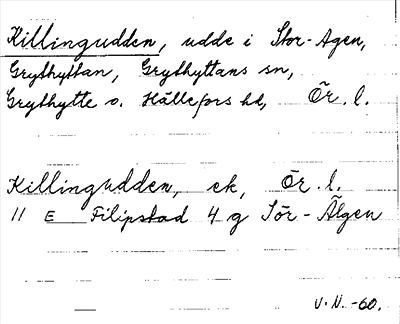 Killingudden, udde i Stor-Agen,
Grythyttan, Grythyttans sn,
Grythytte o. Hällefors hd, Ör. l.
Killingudden, ek, Ör. l.
11 E Filipstad 4 g Sör-Älgen
V.N. -60.